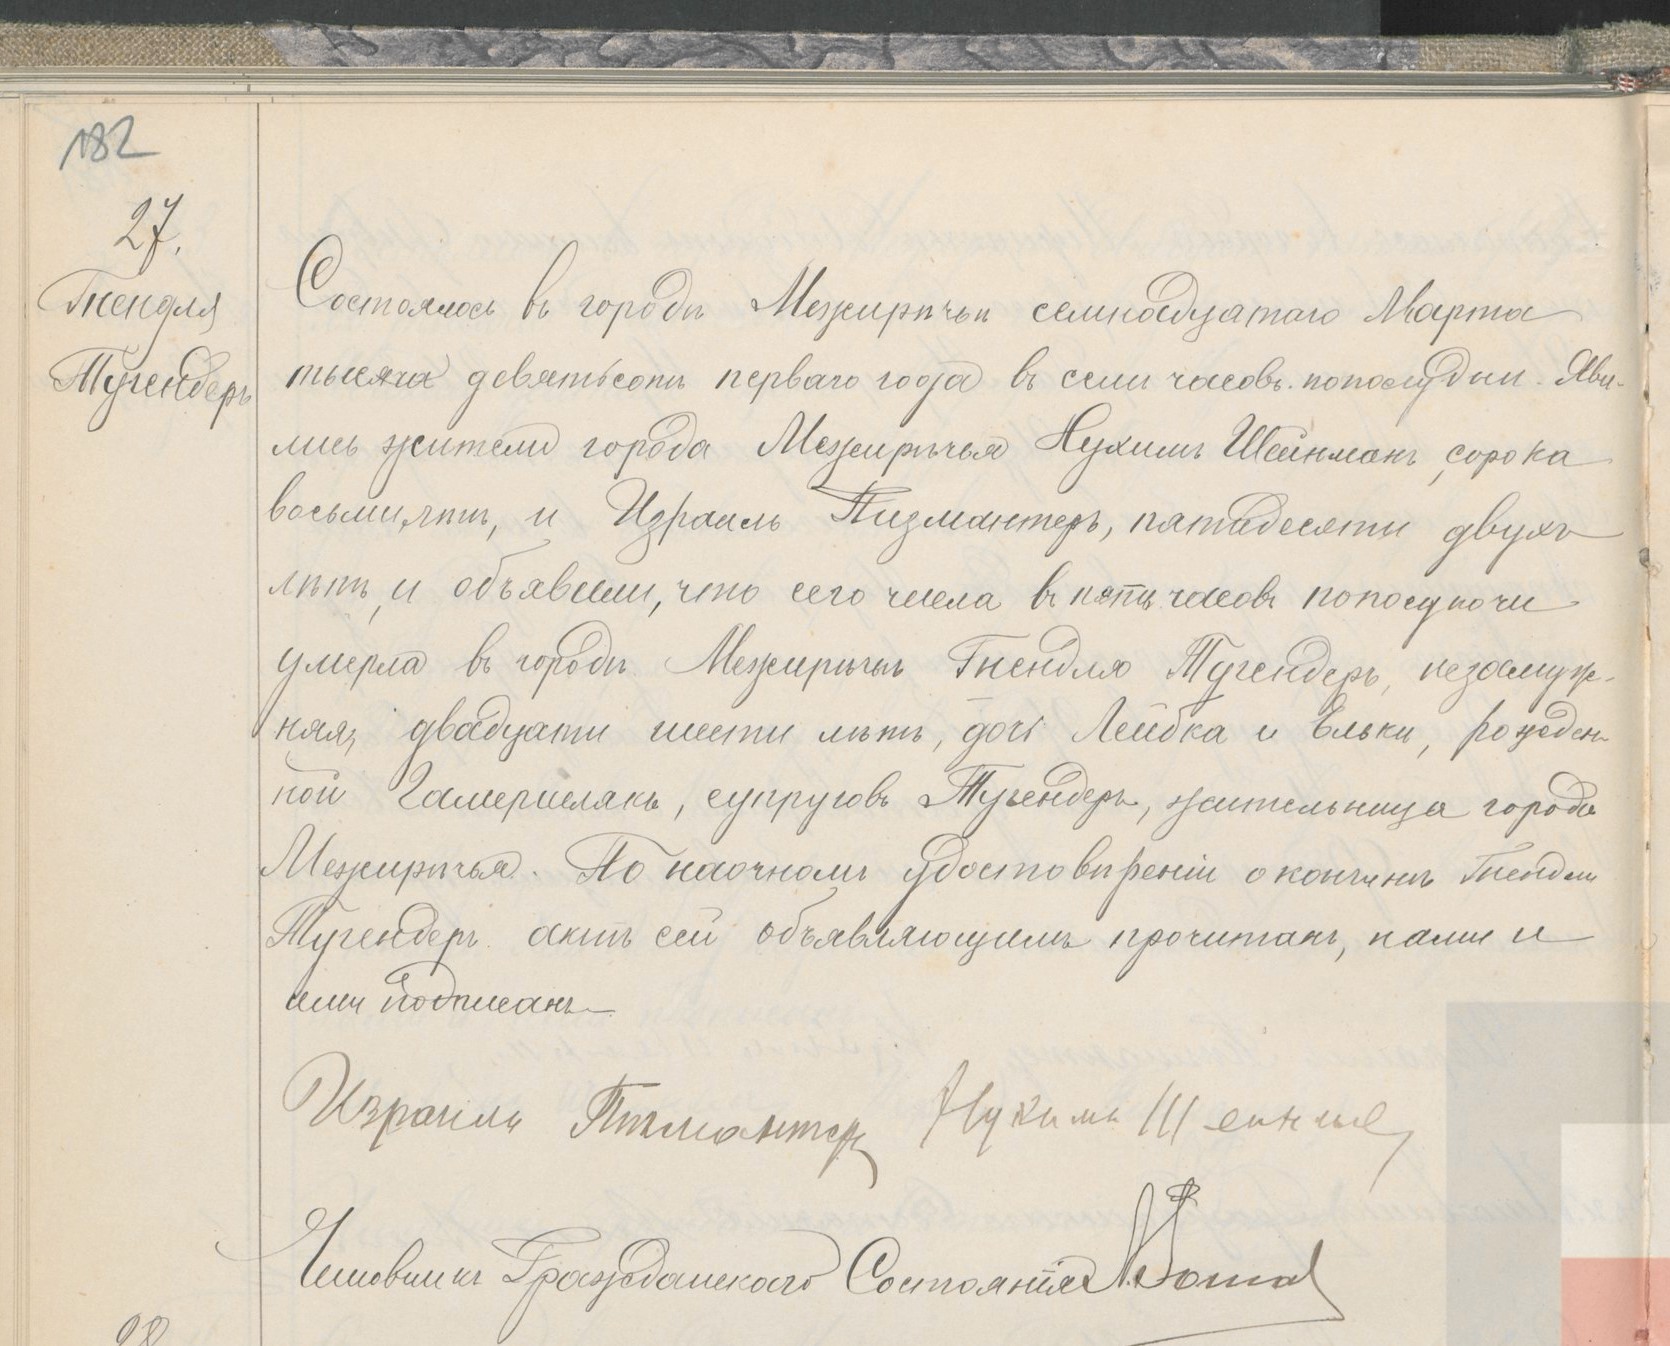 182
27.
Гнендля
Тугендеръ
Состоялось въ городѣ Межирѣчьѣ семнадцатаго Марта
тысяча девятьсотъ перваго года въ семь часовъ пополудни. Яви-
лись жители города Межирѣчья Нухимъ Шейнманъ, сорока
восьми лѣтъ, и Израиль Пизмантеръ, пятидесяти двухъ
лѣтъ, и объявили, что сего числа въ пять часовъ пополуночи
умерла въ городѣ Межирѣчьѣ Гнендля Тугендеръ, незамуж-
няя, двадцати шести лѣтъ, дочь Лейбка и Ельки, рожден-
ной, супруговъ Тугендеръ, жительница города
Межирѣчья. По наочномъ удостовѣреніи о кончинѣ Гнендли
Тугендеръ актъ сей объявляющимъ прочитанъ, нами и
ими подписанъ
Израиль Пизмантер Нухимъ
Чиновникъ Гражданскаго Состоянія
28